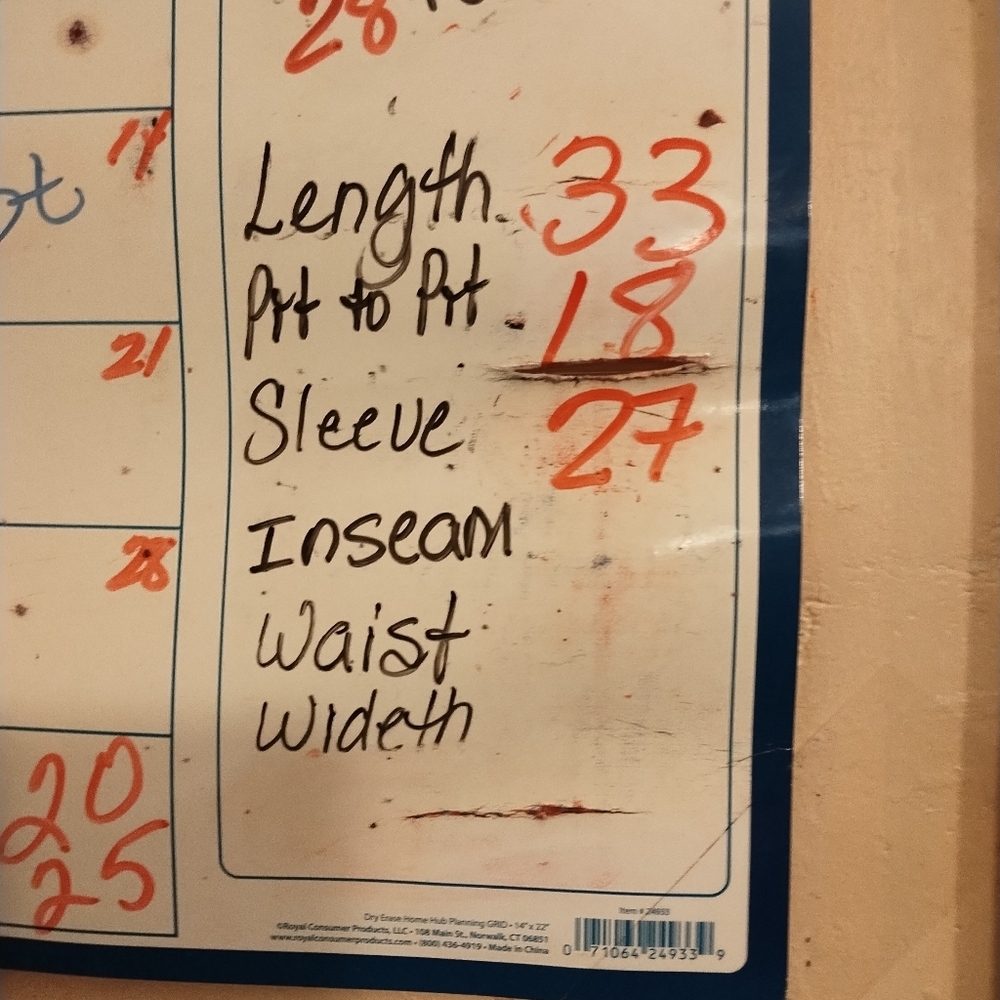 28
14
Length 33
Pit to Pit 18
21
Sleeve 27
Inseam
28
Waist
Wideth
20
25
Item # 24933
Dry Erase Home Hub Planning GRID • 14" x 22"
©Royal Consumer Products, LLC • 108 Main St., Norwalk, CT 06851
www.royalconsumerproducts.com • (800) 436-4919 • Made in China
0 71064 24933 9